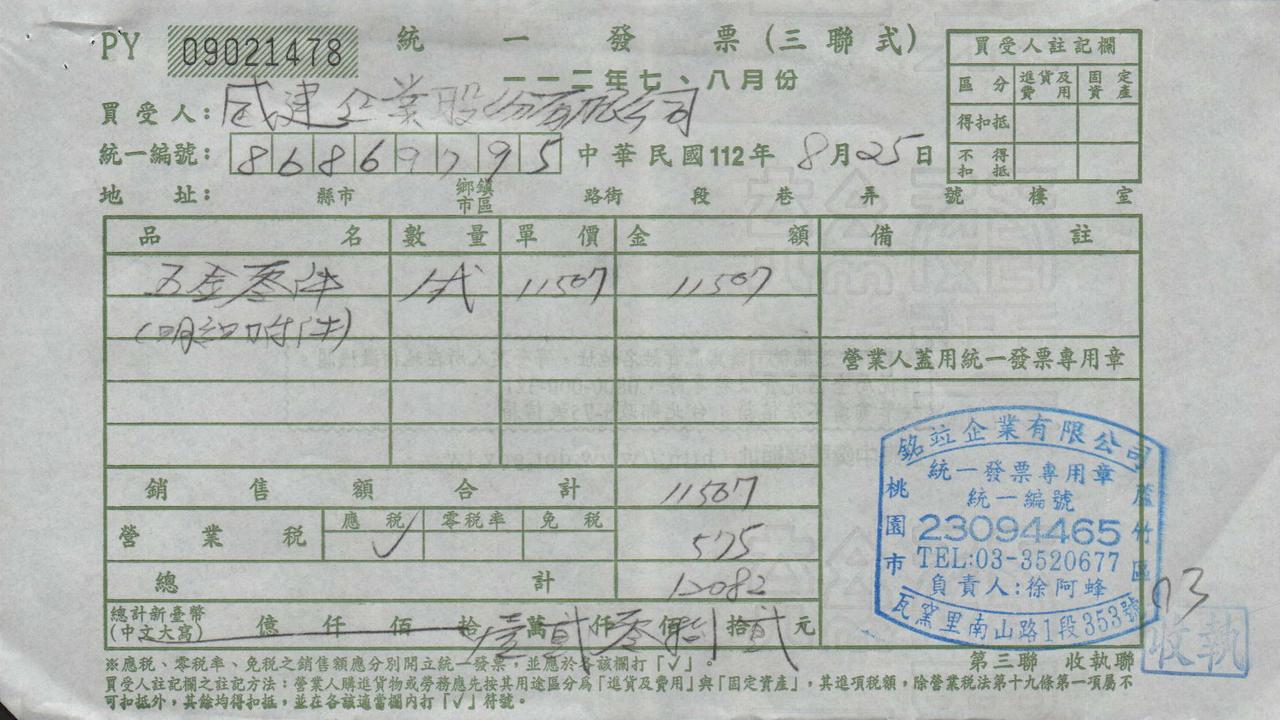 PY 09021478 統一發票(三聯式)
一一二年七、八月份
買受人註記欄
區分 進貨及費用 固定資產
得扣抵
不得扣抵
買受人: 威建企業股份有限公司
統一編號: 86869795 中華民國112年 8月25日
地址: 縣市 鄉鎮市區 路街 段 巷 弄 號 樓 室
品名 數量 單價 金額 備註
五金零件 1式 11507 11507
(明細附件)
營業人蓋用統一發票專用章
銷售額合計 11507
營業稅 應稅 ✓ 零稅率 免稅 575
總計 12082
總計新臺幣(中文大寫) 億 仟 佰 拾 壹萬 貳仟 零佰 捌拾 貳元
銘竝企業有限公司
統一發票專用章
統一編號
23094465
TEL:03-3520677
負責人:徐阿蜂
桃園市
蘆竹區
瓦窯里南山路1段353號
收執
※應稅、零稅率、免稅之銷售額應分別開立統一發票,並應於各該欄打「✓」。
第三聯 收執聯
買受人註記欄之註記方法:營業人購進貨物或勞務應先按其用途區分為「進貨及費用」與「固定資產」,其進項稅額,除營業稅法第十九條第一項屬不
可扣抵外,其餘均得扣抵,並在各該適當欄內打「✓」符號。